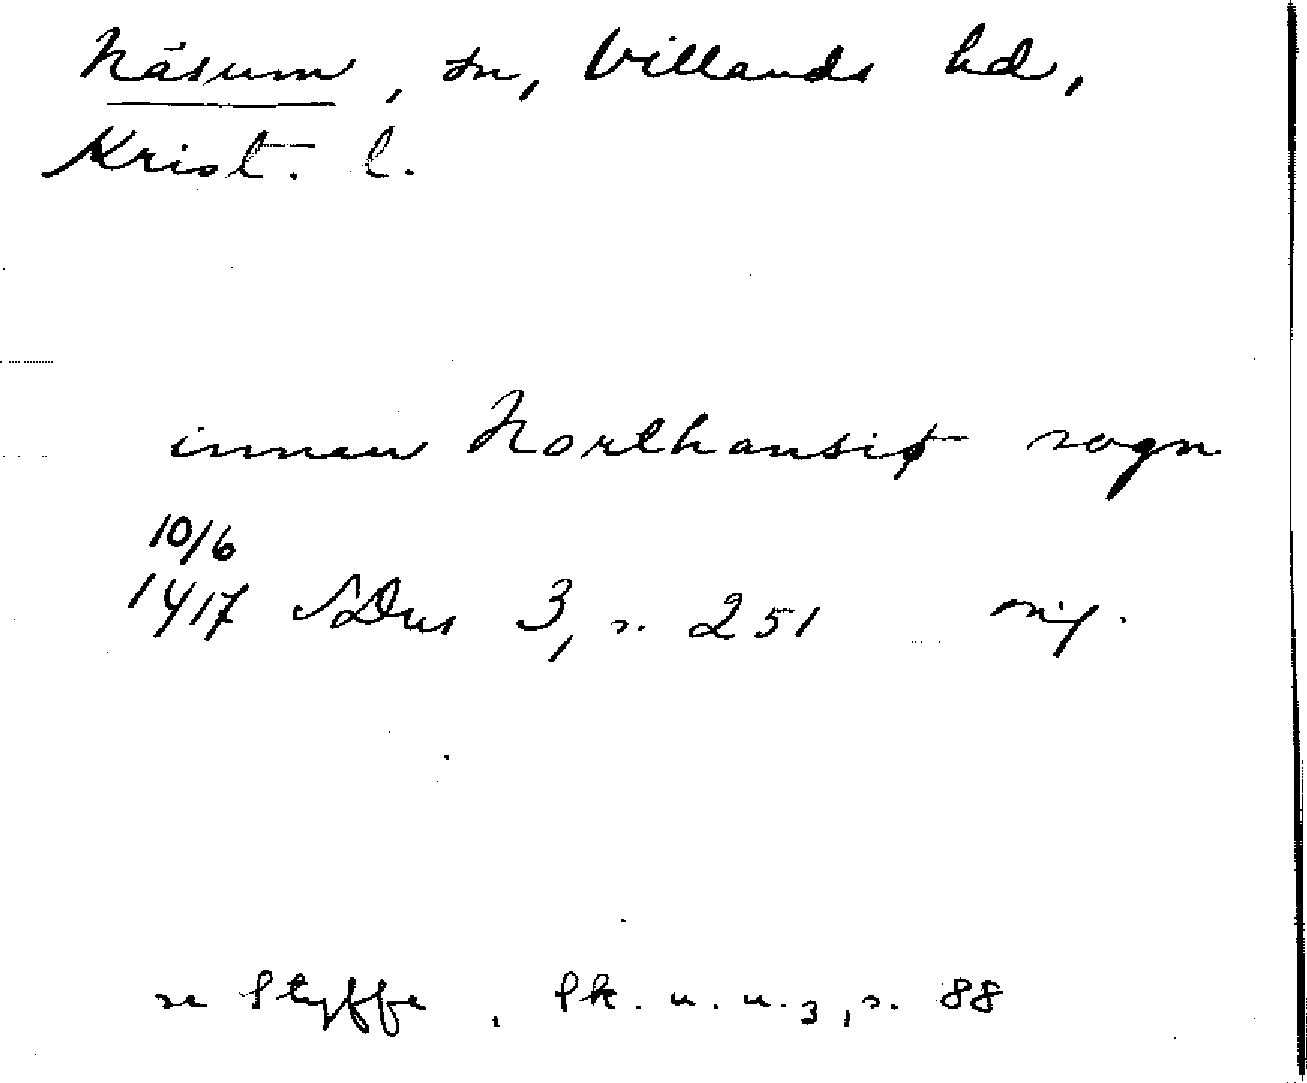 Näsum, sn, Villands hd,
Krist. l.
innen Northansiø sogn
10/6
1417 SDns 3, s. 251 nif.
se Styffe, Sk. u. u. 3, s. 88